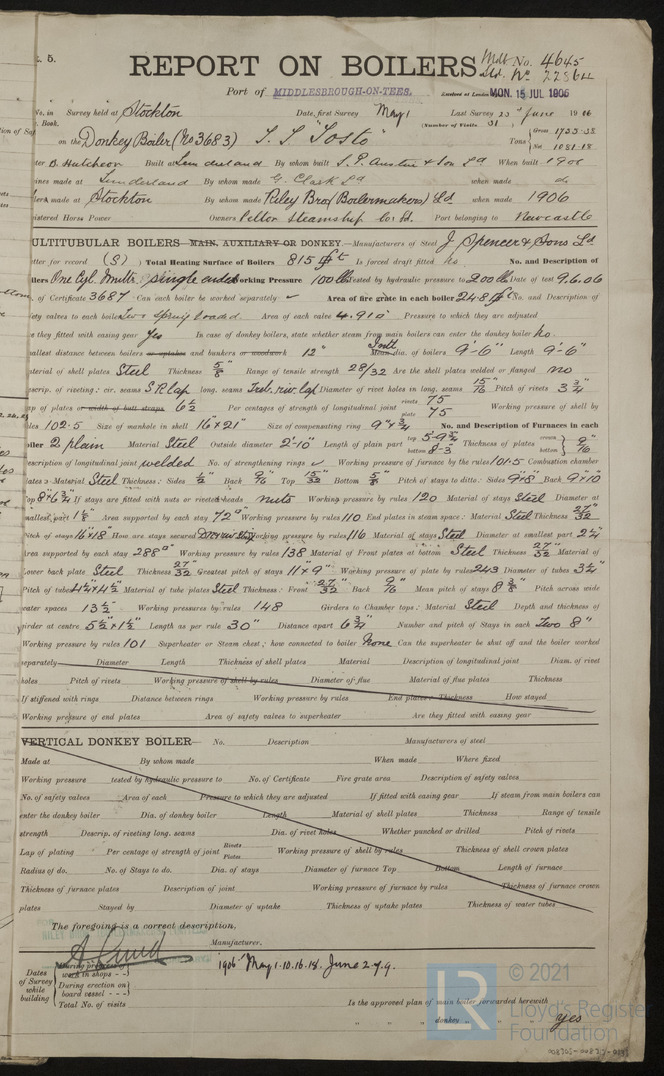 5.
REPORT ON BOILERS.
Mdb No. 4645
Port of MIDDLESBROUGH-ON-TEES.
Received at London MON. 16 JUL 1906
No. in Survey held at Stockton Date, first Survey May 1 Last Survey 23rd June 1906
Book. (Number of Visits 31)
on the Donkey Boiler (No 3683) S.S. "Tosto" Tons { Gross 1733.38 Net 1081.18
B. Hutcheon Built at Sunderland By whom built S.P. Austin & Son Ld When built 1906
made at Sunderland By whom made G. Clark Ld when made do
made at Stockton By whom made Riley Bros (Boilermakers) Ld when made 1906
Horse Power Owners Pelton Steamship Co. Ld. Port belonging to Newcastle
MULTITUBULAR BOILERS MAIN, AUXILIARY OR DONKEY.—Manufacturers of Steel J. Spencer & Sons Ld
Letter for record (S) Total Heating Surface of Boilers 815 sq ft Is forced draft fitted no No. and Description of
Boilers One Cyl. Multr. single ended Working Pressure 100 lb Tested by hydraulic pressure to 200 lb Date 9.6.06
No. of Certificate 3687 Can each boiler be worked separately ✓ Area of fire grate in each boiler 24.8 sq ft No. and Description of
safety valves to each boiler Two Spring loaded Area of each valve 4.910" Pressure to which they are adjusted
Are they fitted with easing gear Yes In case of donkey boilers, state whether steam from main boilers can enter the donkey boiler No.
Smallest distance between boilers or uptakes and bunkers or woodwork 12" Intl. Mean dia. of boilers 9'-6" Length 9'-6"
Material of shell plates Steel Thickness 5/8" Range of tensile strength 28/32 Are the shell plates welded or flanged no
Descrip. of riveting: cir. seams S R Lap long. seams Treb. riv. lap Diameter of rivet holes in long. seams 15/16 Pitch of rivets 3 3/4"
Lap of plates or width of butt straps 6 1/2 Per centages of strength of longitudinal joint rivets 75 plate 75 Working pressure of shell by
rules 102.5 Size of manhole in shell 16" x 21" Size of compensating ring 9" x 3/4 No. and Description of Furnaces in each
boiler 2 plain Material Steel Outside diameter 2'-10" Length of plain part top 5-9 3/4 bottom 8-3 Thickness of plates crown bottom } 9/16"
Description of longitudinal joint welded No. of strengthening rings ✓ Working pressure of furnace by the rules 101.5 Combustion chamber
plates: Material Steel Thickness: Sides 1/2" Back 9/16" Top 15/32" Bottom 5/8" Pitch of stays to ditto: Sides 9" x 8" Back 9" x 10"
Top 8" x 6 3/4" If stays are fitted with nuts or riveted heads nuts Working pressure by rules 120 Material of stays Steel Diameter at
smallest part 1 1/2" Area supported by each stay 72" Working pressure by rules 110 End plates in steam space: Material Steel Thickness 27/32
Pitch of stays 16" x 18" How are stays secured Working pressure by rules 116 Material of stays Steel Diameter at smallest part 2 1/4"
Area supported by each stay 288" Working pressure by rules 138 Material of Front plates at bottom Steel Thickness 27/32 Material of
Lower back plate Steel Thickness 27/32 Greatest pitch of stays 11" x 9" Working pressure of plate by rules 243 Diameter of tubes 3 1/4"
Pitch of tubes 4 1/2" x 4 1/2" Material of tube plates Steel Thickness: Front 27/32 Back 9/16" Mean pitch of stays 8 3/8" Pitch across wide
water spaces 13 1/2" Working pressures by rules 148 Girders to Chamber tops: Material Steel Depth and thickness of
girder at centre 5 1/2" x 1 1/2" Length as per rule 30" Distance apart 6 3/4" Number and pitch of Stays in each Two 8"
Working pressure by rules 101 Superheater or Steam chest; how connected to boiler None Can the superheater be shut off and the boiler worked
separately Diameter Length Thickness of shell plates Material Description of longitudinal joint Diam. of rivet
holes Pitch of rivets Working pressure of shell by rules Diameter of flue Material of flue plates Thickness
If stiffened with rings Distance between rings Working pressure by rules End plates: Thickness How stayed
Working pressure of end plates Area of safety valves to superheater Are they fitted with easing gear
VERTICAL DONKEY BOILER— No. Description Manufacturers of steel
Made at By whom made When made Where fixed
Working pressure tested by hydraulic pressure to No. of Certificate Fire grate area Description of safety valves
No. of safety valves Area of each Pressure to which they are adjusted If fitted with easing gear If steam from main boilers can
enter the donkey boiler Dia. of donkey boiler Length Material of shell plates Thickness Range of tensile
strength Descrip. of riveting long. seams Dia. of rivet holes Whether punched or drilled Pitch of rivets
Lap of plating Per centage of strength of joint Rivets Plates Working pressure of shell by rules Thickness of shell crown plates
Radius of do. No. of Stays to do. Dia. of stays Diameter of furnace Top Bottom Length of furnace
Thickness of furnace plates Description of joint Working pressure of furnace by rules Thickness of furnace crown
plates Stayed by Diameter of uptake Thickness of uptake plates Thickness of water tubes
The foregoing is a correct description,
Manufacturer.
Dates of Survey while building { During progress of work in shops - - During erection on board vessel - - - Total No. of visits
1906 May 1.10.16.18. June 2.7.9.
Is the approved plan of main boiler forwarded herewith
" " " donkey " " yes
LR
© 2021
Lloyd's Register
Foundation